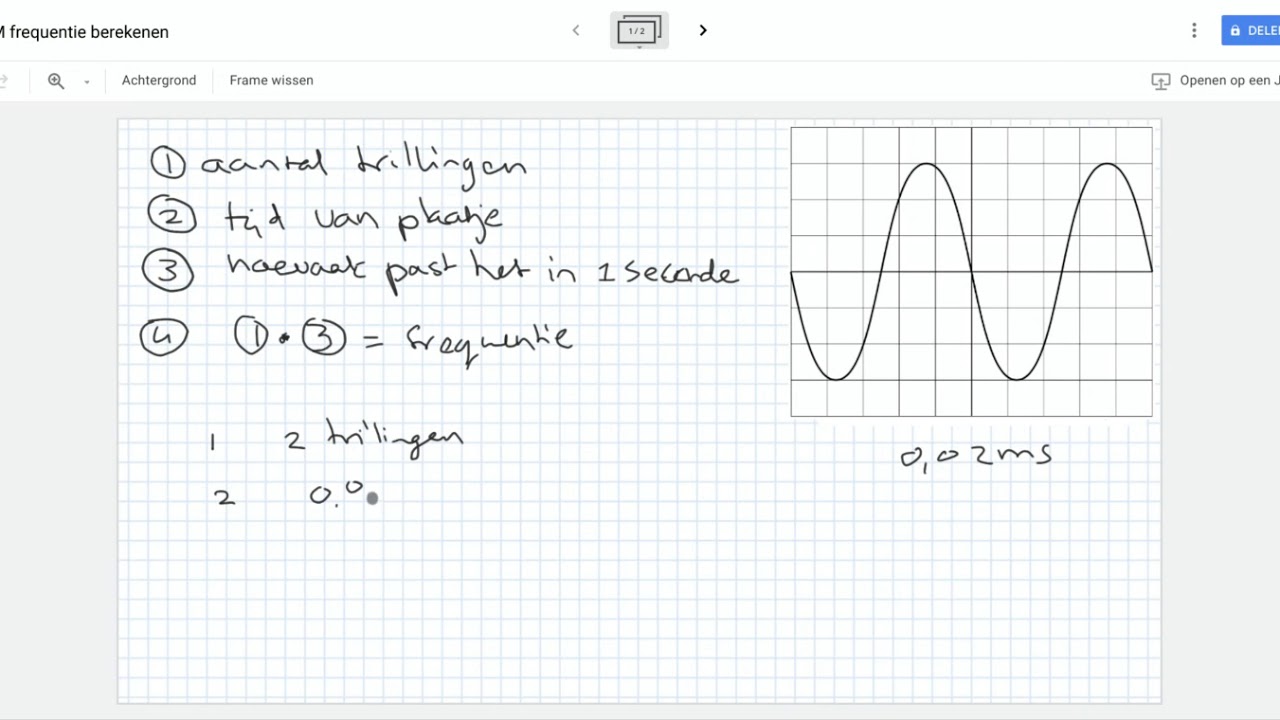 M frequentie berekenen
1 / 2
DELE
Achtergrond
Frame wissen
Openen op een J
① aantal trillingen
② tijd van plaatje
③ hoevaak past het in 1 seconde
④ ① · ③ = frequentie
1 2 trillingen
2 0,0
0,02ms